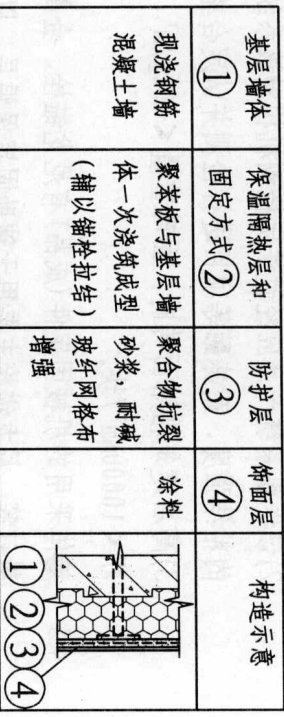 基层墙体
①
保温隔热层和
固定方式②
防护层
③
饰面层
④
构造示意
现浇钢筋
混凝土墙
聚苯板与基层墙
体一次浇筑成型
(辅以锚栓拉结)
聚合物抗裂
砂浆,耐碱
玻纤网格布
增强
涂料
①②③④